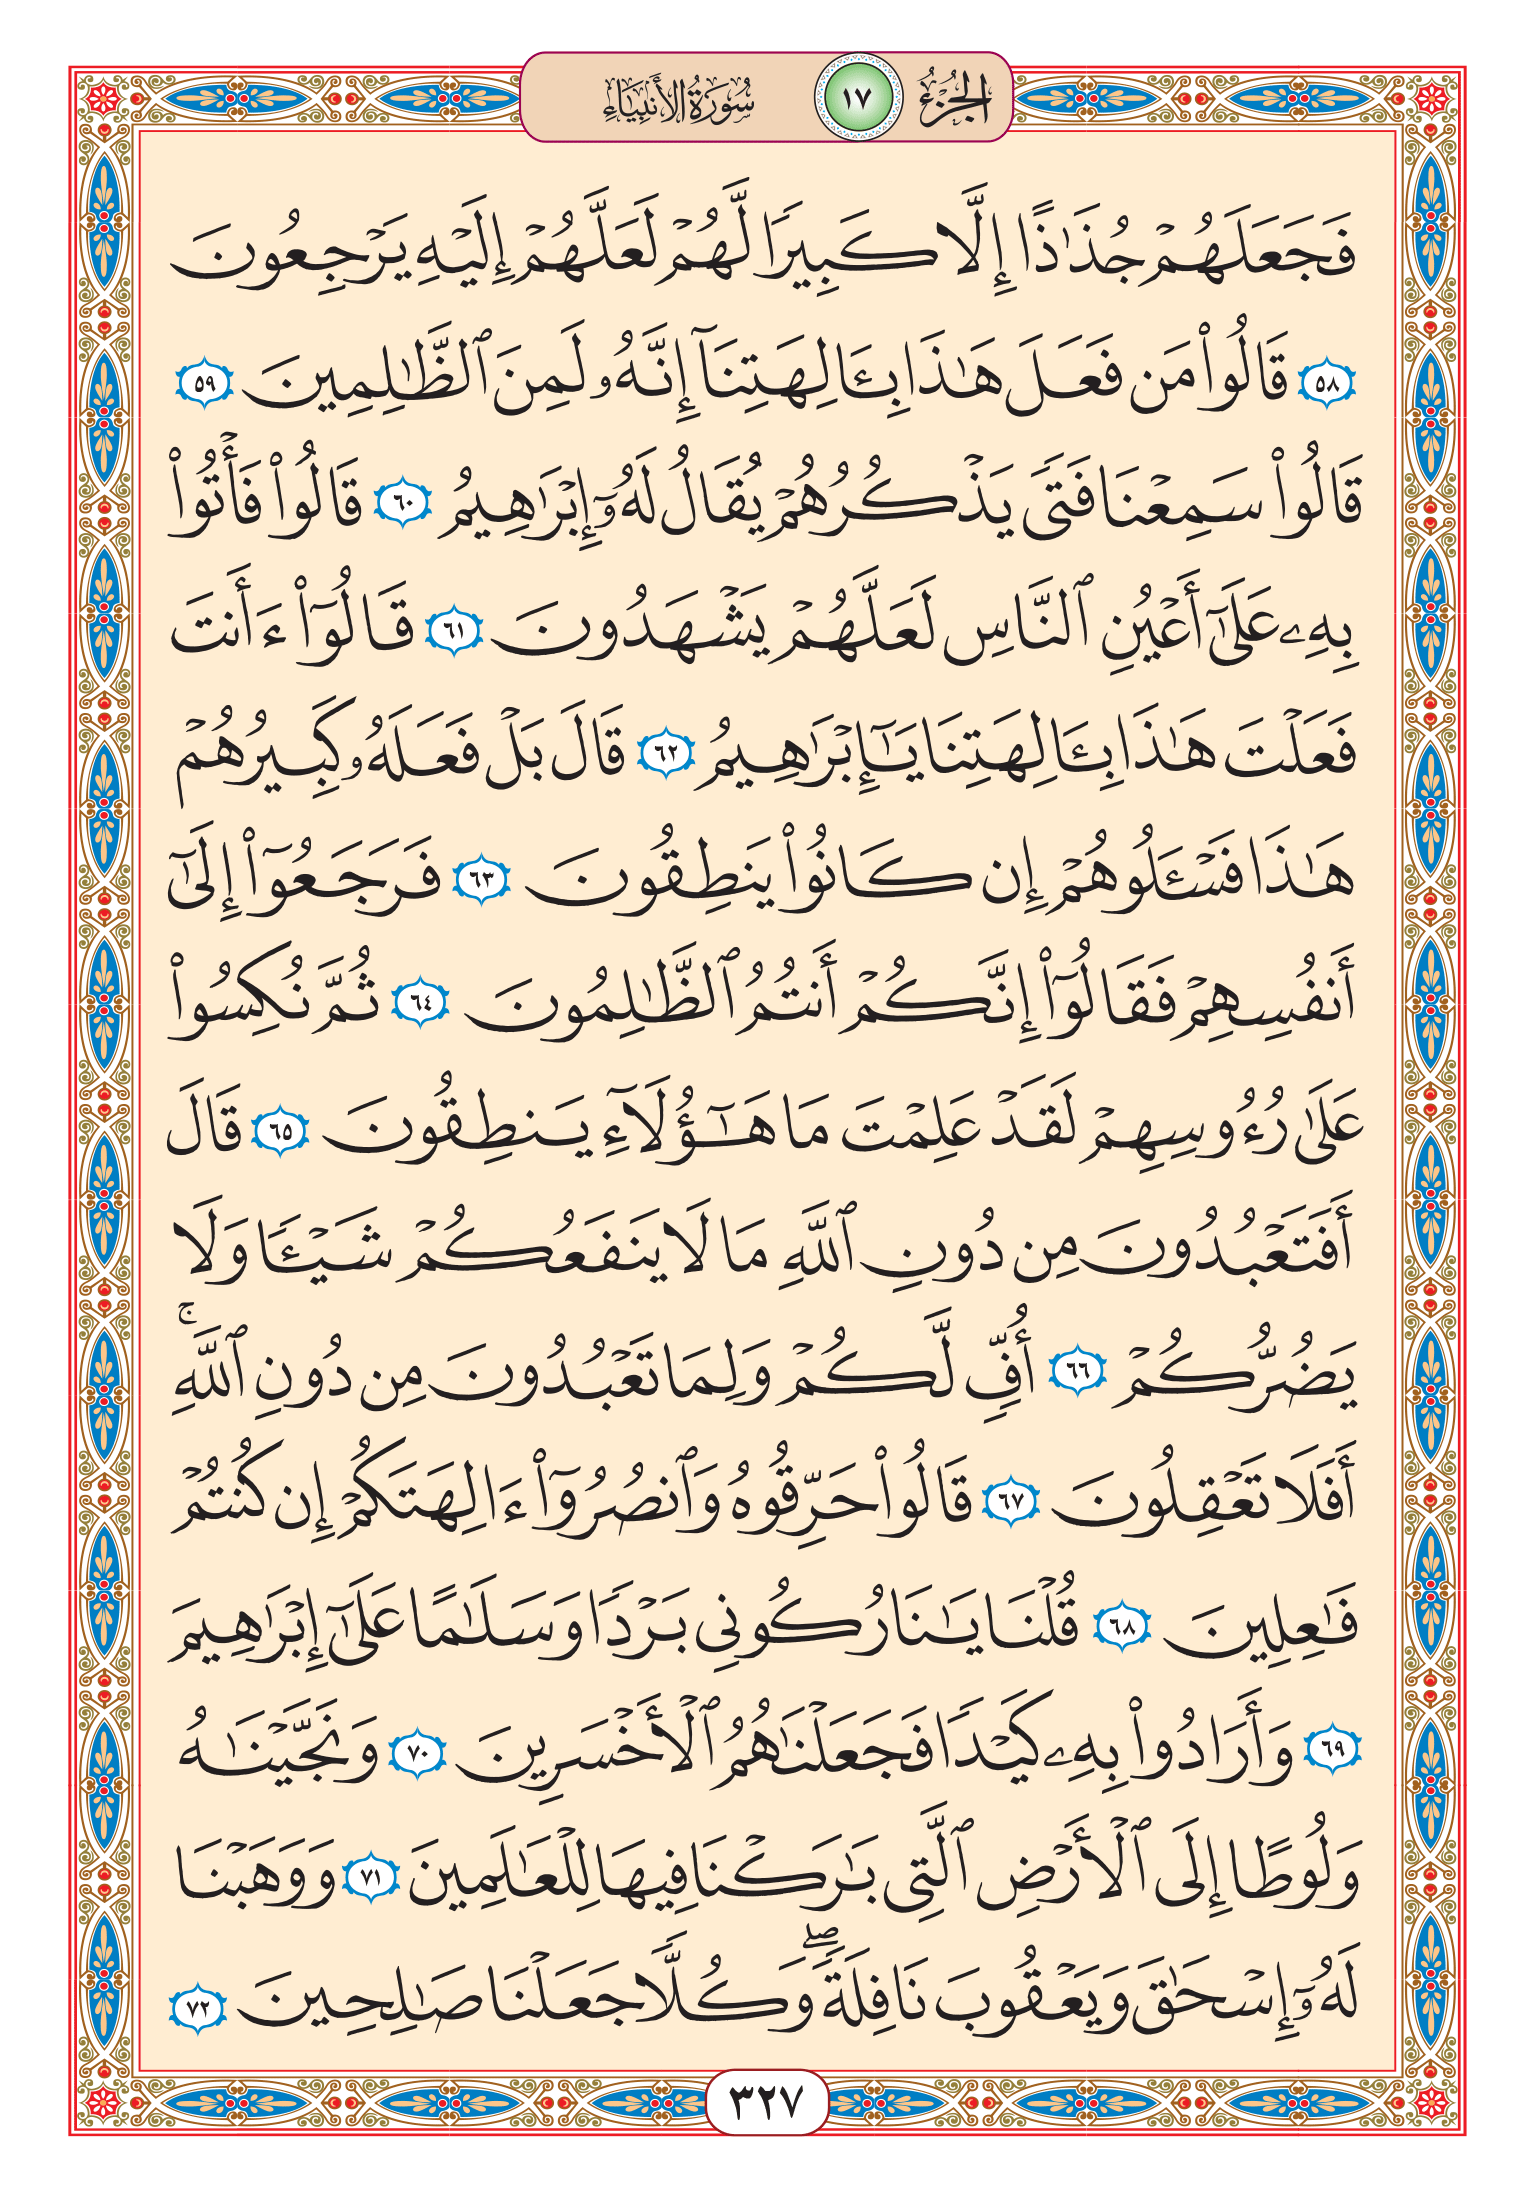 الجزء ١٧ سورة الأنبياء
فَجَعَلَهُمْ جُذَٰذًا إِلَّا كَبِيرًا لَّهُمْ لَعَلَّهُمْ إِلَيْهِ يَرْجِعُونَ
٥٨ قَالُوا۟ مَن فَعَلَ هَٰذَا بِـَٔالِهَتِنَآ إِنَّهُۥ لَمِنَ ٱلظَّٰلِمِينَ ٥٩
قَالُوا۟ سَمِعْنَا فَتًى يَذْكُرُهُمْ يُقَالُ لَهُۥٓ إِبْرَٰهِيمُ ٦٠ قَالُوا۟ فَأْتُوا۟
بِهِۦ عَلَىٰٓ أَعْيُنِ ٱلنَّاسِ لَعَلَّهُمْ يَشْهَدُونَ ٦١ قَالُوٓا۟ ءَأَنتَ
فَعَلْتَ هَٰذَا بِـَٔالِهَتِنَا يَٰٓإِبْرَٰهِيمُ ٦٢ قَالَ بَلْ فَعَلَهُۥ كَبِيرُهُمْ
هَٰذَا فَسْـَٔلُوهُمْ إِن كَانُوا۟ يَنطِقُونَ ٦٣ فَرَجَعُوٓا۟ إِلَىٰٓ
أَنفُسِهِمْ فَقَالُوٓا۟ إِنَّكُمْ أَنتُمُ ٱلظَّٰلِمُونَ ٦٤ ثُمَّ نُكِسُوا۟
عَلَىٰ رُءُوسِهِمْ لَقَدْ عَلِمْتَ مَا هَٰٓؤُلَآءِ يَنطِقُونَ ٦٥ قَالَ
أَفَتَعْبُدُونَ مِن دُونِ ٱللَّهِ مَا لَا يَنفَعُكُمْ شَيْـًٔا وَلَا
يَضُرُّكُمْ ٦٦ أُفٍّ لَّكُمْ وَلِمَا تَعْبُدُونَ مِن دُونِ ٱللَّهِ ۚ
أَفَلَا تَعْقِلُونَ ٦٧ قَالُوا۟ حَرِّقُوهُ وَٱنصُرُوٓا۟ ءَالِهَتَكُمْ إِن كُنتُمْ
فَٰعِلِينَ ٦٨ قُلْنَا يَٰنَارُ كُونِى بَرْدًا وَسَلَٰمًا عَلَىٰٓ إِبْرَٰهِيمَ
٦٩ وَأَرَادُوا۟ بِهِۦ كَيْدًا فَجَعَلْنَٰهُمُ ٱلْأَخْسَرِينَ ٧٠ وَنَجَّيْنَٰهُ
وَلُوطًا إِلَى ٱلْأَرْضِ ٱلَّتِى بَٰرَكْنَا فِيهَا لِلْعَٰلَمِينَ ٧١ وَوَهَبْنَا
لَهُۥٓ إِسْحَٰقَ وَيَعْقُوبَ نَافِلَةً ۖ وَكُلًّا جَعَلْنَا صَٰلِحِينَ ٧٢
٣٢٧